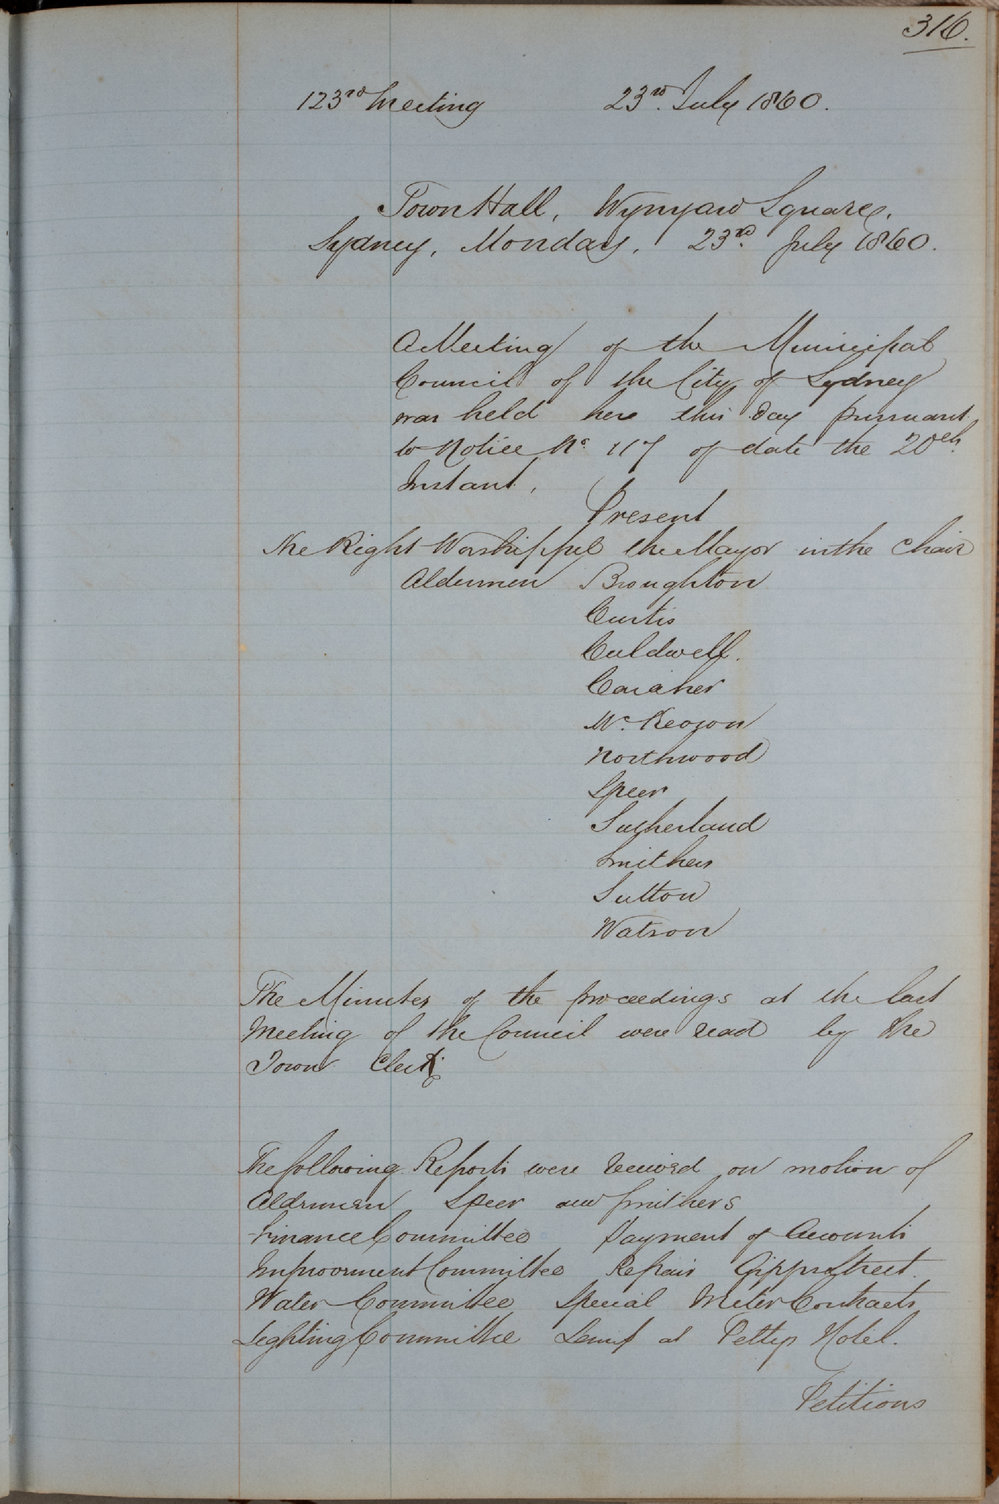 316.
123rd Meeting 23rd July 1860.
Town Hall, Wynyard Square,
Sydney, Monday, 23rd July 1860.
A Meeting of the Municipal
Council of the City of Sydney
was held here this day pursuant
to Notice No. 117 of date the 20th
Instant,
Present
The Right Worshipful the Mayor in the Chair
Aldermen Broughton
Curtis
Culdwell.
Caraher
Mc.Keogon
Northwood
Speer
Sutherland
Smithers
Sutton
Watson
The Minutes of the proceedings at the last
Meeting of the Council were read by the
Town Clerk
The following Reports were received on motion of
Aldermen Speer and Smithers
Finance Committee Payment of Accounts
Improvement Committee Repair Gipps Street.
Water Committee Special Meter Contracts
Lighting Committee Lamp at Pettys Hotel.
Petitions